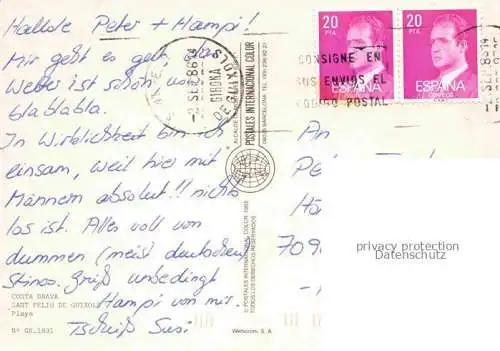 Hallole Peter + Hampi!
Mir geht es gut, das
Wetter ist schön und
blablabla.
In Wirklichkeit bin ich
einsam, weil hier mit
Männern absolut!! nichts
los ist. Alles voll von
dummen (meist deutschen)
Stinos. Grüß unbedingt
Hampi von mir.
Tschüß Susi
COSTA BRAVA
SANT FELIU DE GUIXOLS
Playa
Nº GE.1831
GIRONA
DE GUIXOLS
2 SEP. 86
POSTALES INTERNACIONAL COLOR
© POSTALES INTERNACIONAL COLOR 1985
TODOS LOS DERECHOS RESERVADOS
Wehocsm, S. A.
20
PTA
ESPAÑA
CORREOS
20
PTA
ESPAÑA
CONSIGNE EN
SUS ENVIOS EL
CODIGO POSTAL
An
Pe
Ha
709
privacy protection
Datenschutz